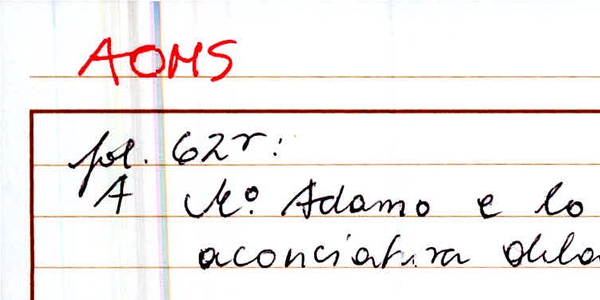 AOMS
fol. 62r:
A Mº. Adamo e lo
aconciatura dela